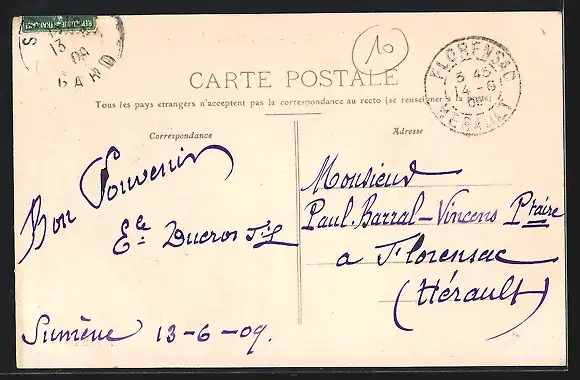 RÉPUBLIQUE FRANÇAISE
13
09
GARD
10
FLORENSAC
5 45
14 - 6
09
HERAULT
CARTE POSTALE
Tous les pays etrangers n'acceptent pas la correspondance au recto (se renseigner à la poste)
Correspondance
Bon Souvenir
Ele Ducros
Sumène 13-6-09.
Adresse
Monsieur
Paul Barral-Vincens Ptaire
a Florensac
(Hérault)